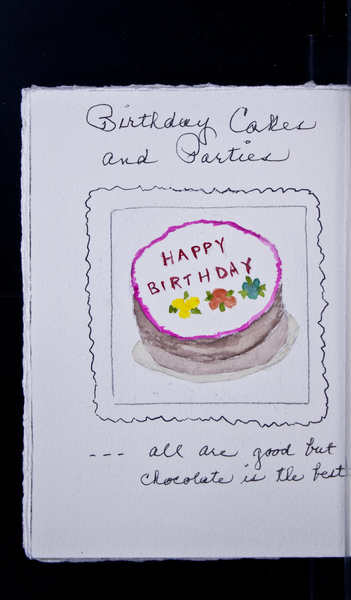 Birthday Cakes
and Parties
HAPPY
BIRTHDAY
--- all are good but
chocolate is the best